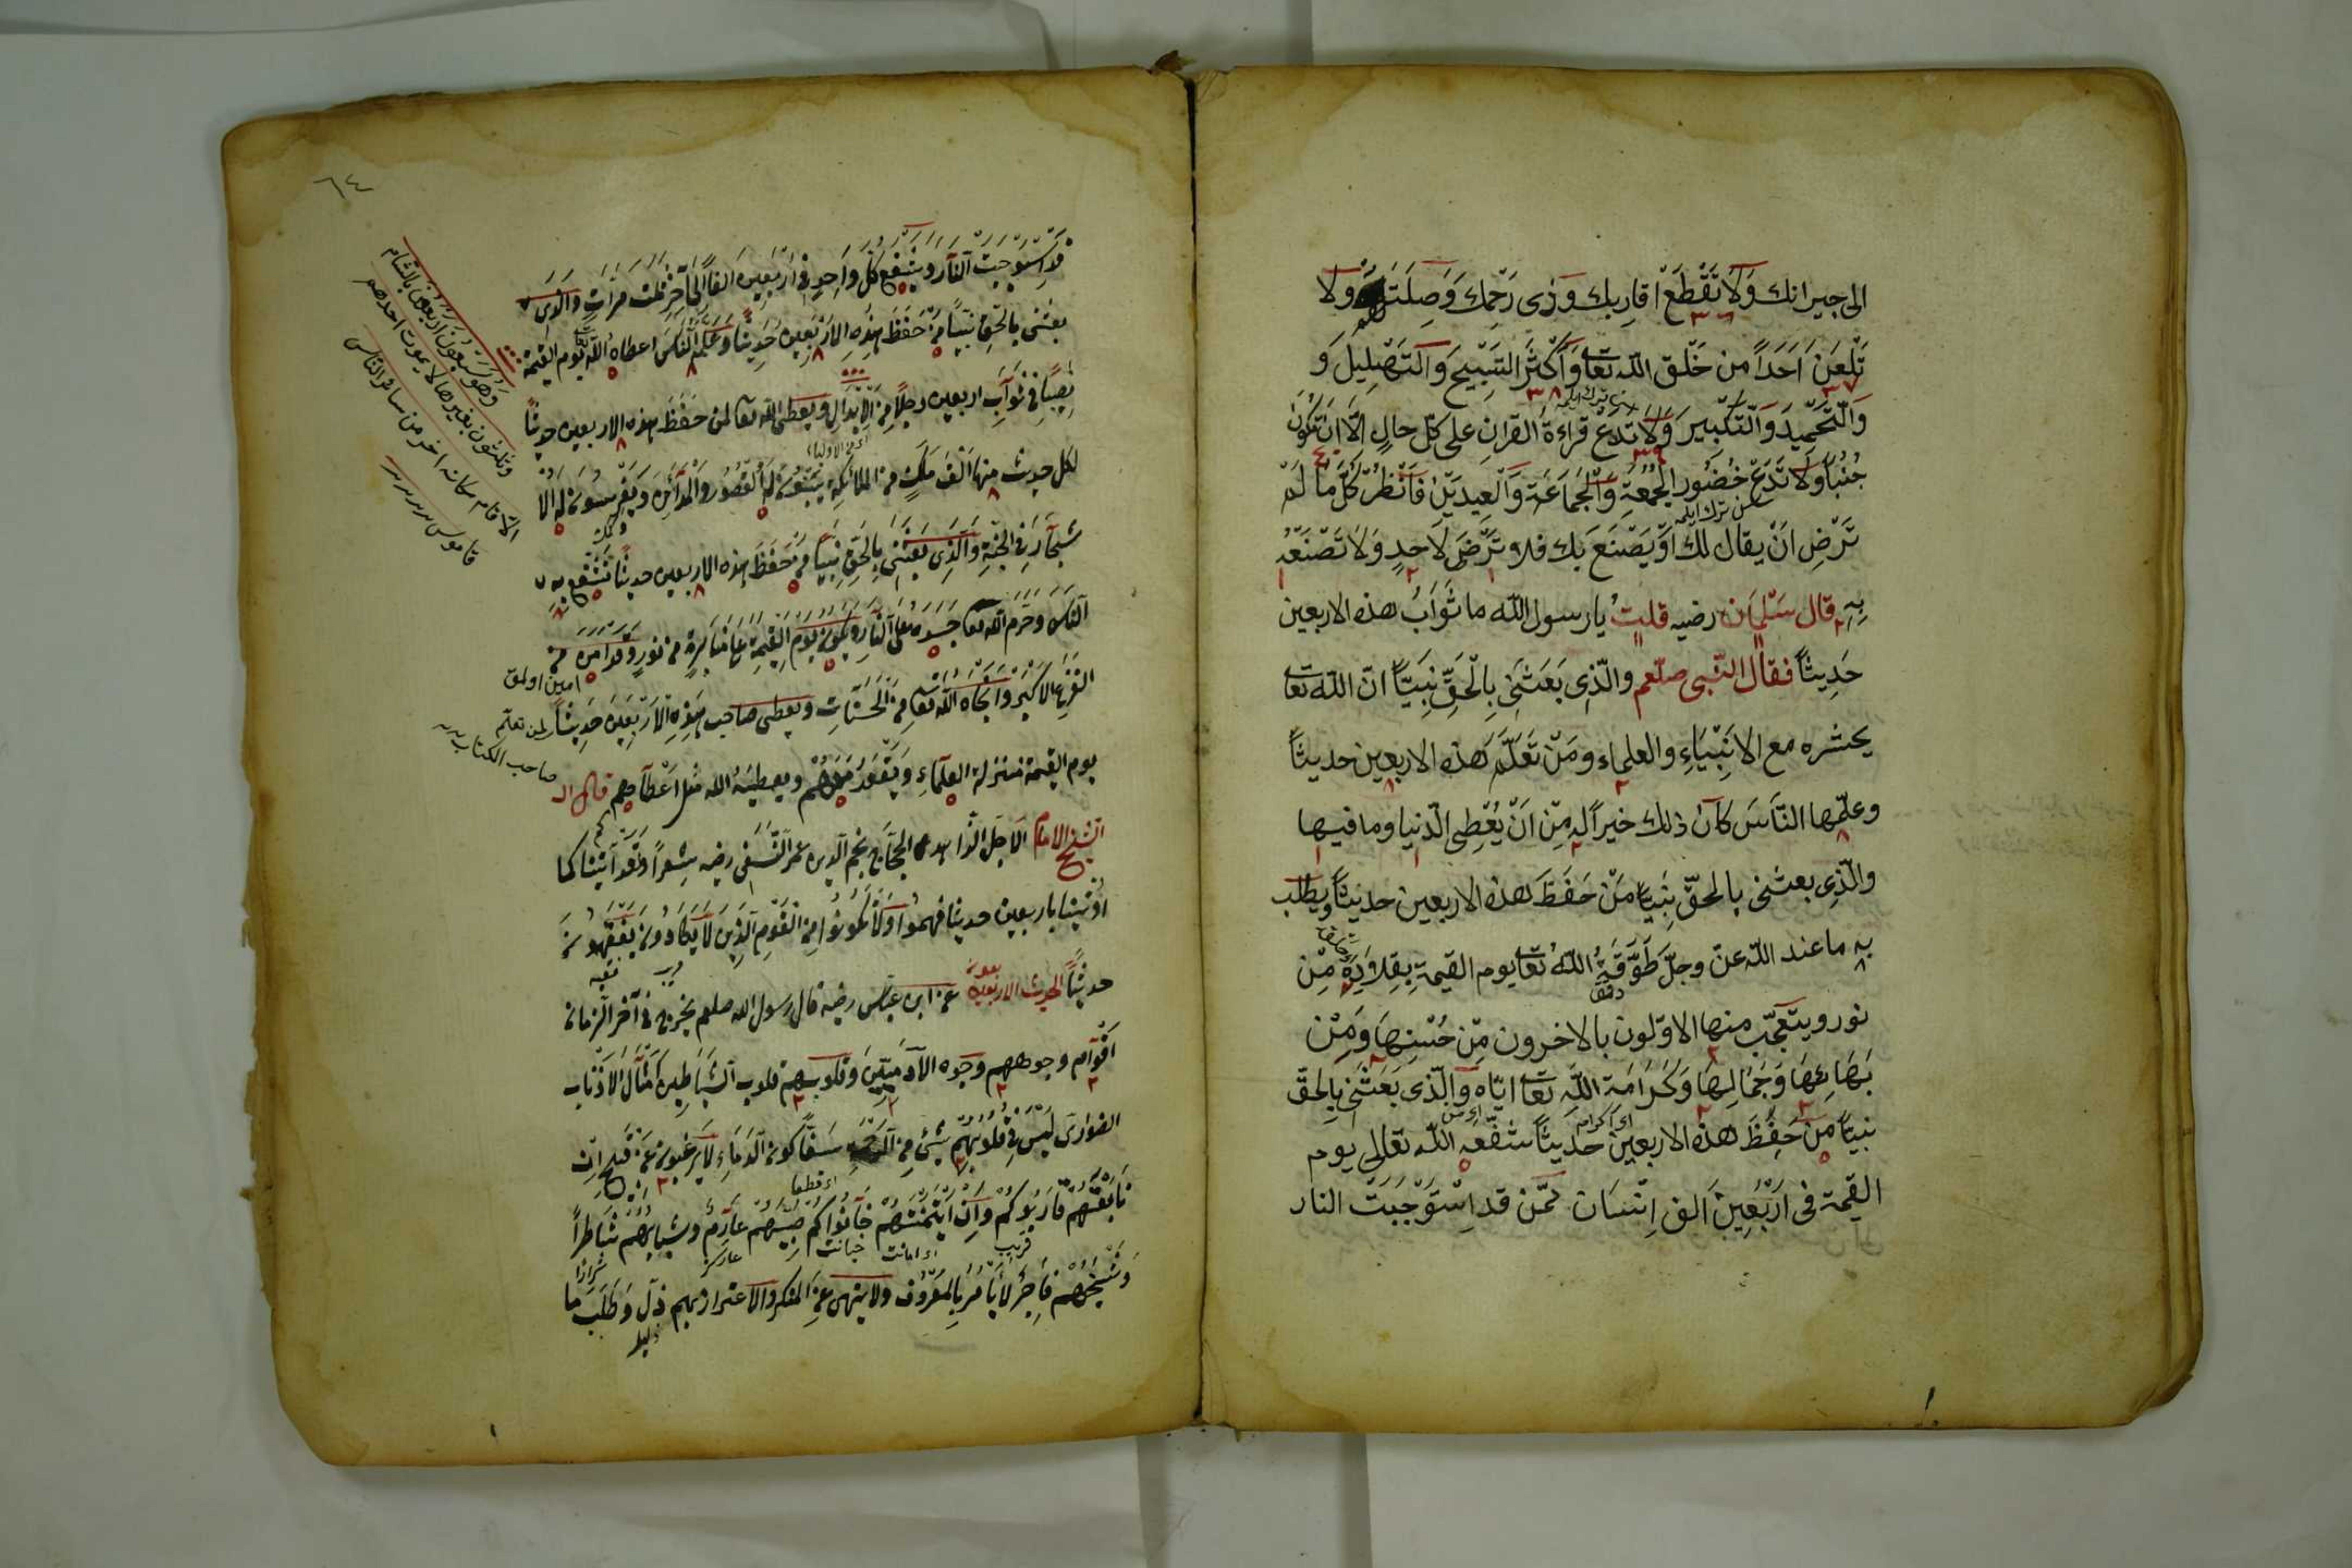 الى جيرانك وَلَا تَقْطَعْ اقارِبك وذى رَحْمِك وَصِلَتَهُمْ وَلا
تَلْعَنَ اَحَدَاً من خَلْق اللّه تعا وَاَكْثَرَ التَّسْبِيحَ وَالتَهْلِيلَ وَ
وَالتَّحْمِيدَ وَالتَّكْبِيرَ وَلَا تَدَعْ قراءةَ القرانِ على كلّ حالٍ الّا ان تكُونَ
جُنُباً وَلَا تَدَعْ حُضُور الجُمُعَةِ وَالْجَمَاعَةِ وَالْعِيدَيْنِ فَانْظُرْ كُلَّ مَا لَمْ
تَرْضِ انْ يقال لك اَوْ يَصْنَعَ بك فلا تَرْضَ لَاحَدٍ وَلا تَصْنَعْهُ
بِهِ قال سَلْمَان رضيه قلتُ يا رسول اللّه ما ثَوَابُ هذه الاربعين
حَدِيثاً فقال النّبى صلعم والّذِى بَعَثَنِى بِالْحَقِّ نَبِيّاً انّ اللّه تعا
يحشره مع الانْبِيَاءِ والعلماء ومَنْ تَعَلَّمَ هذه الاربعين حديثاً
وعلّمها النّاسَ كانَ ذلك خيراً له مِّن اَنْ يُعْطِى الّدنيا وما فيها
والّذِى بعثنى بالحقّ نَبِيّاً مَنْ حَفَظَ هذه الاربعين حديثاً ويطلب
به ما عند اللّه عزّ وجلّ طَوَّقَهُ اللّهُ تعا يوم القيمةِ بِقِلَادَةٍ مِّن
نور ويتعجّب منها الاوّلون بالاخرون مِّن حُسْنِهَا وَمِنْ
بَهَائِهَا وَجَمَالِهَا وَكَرَامَةِ اللّهِ تعا ايّاه وَالّذى بَعَثَنِى بِالحقّ
نبيّاً من حَفِظَ هذه الاربعين حديثاً شفّعه اللّه تعالى يوم
القيمة فى اَرْبَعِينَ الف اِنْسَان ممّن قد اِسْتَوْجَبَتْ النار
٦٤
قد اسْتَوْجَبَتْ النّار ويشْفع كُلّ واحِدٍ فى اَرْبَعِينَ الفاً اِلَى آخِر ثلث مَرّاتٍ وَالّذى
بعثنى بالحَقِّ نَبِيّاً مَنْ حَفَظَ هذه الاَرْبَعِينَ حَدِيثاً وعَلَّمَهُ النّاسَ اعطاهُ اللّه تعا يوم القيمة
نَصِيباً فى ثَوَابِ اربعين رجلاً مِنَ الاَبْدَالِ ويعطى اللّه تعا لمن حَفَظَ هذه الاربعين حديثاً
اى من الاولياء
لكل حديث منها اَلْفَ مَلَكٍ من الملائكة يَبْنُونَ له القُصُورَ وَالْمَدَائِنَ وَيَغْرِسُونَ لَهُ الا
شْجَارَ فِى الجَنّةِ وَالّذِى بَعَثَنِى بِالحَقِّ نَبِيّاً مَنْ حَفَظَ هذه الاربعين حديثاً تَشْفَع به
النّاسَ وَحَرَّمَ اللّه تعا جَسَدَهُ على النّارِ ويكون يَوْمَ القِيمَةِ على مَنَابِرَةٍ من نورٍ وقد امِنَ من
امين اولمق
الفَزَعِ الاكْبَرِ وَاَنْجَاهُ اللّه تعا من الحَسَنَاتِ ويعطى صاحب هذِهِ الاَرْبَعِينَ حَدِيثاً لمن تعلم
صاحب الكتاب
يوم القيمة منزلة العلماءِ وَيَقْعُدُ مَعَهُمْ ويعطيهُ اللّه مثل اَعْطَآءِهم قال الـ
الشيخ الامام الاَجَلّ الزّاهد الحجّاج نجم الّدين عمر النَّسَفِى رضيه شِعراً وَقَدْ آتينا كما
اُوتينا باربعين حديثا فهموا وَلَا تكُونُوا مِنَ القَوْمِ الّذِينَ لَا يَكَادُونَ يَفْقَهُونَ
حديثاً الحديث الاربعون عن ابن عبّاس رضيه قال رسول الله صلعم يَخْرج فى آخر الّزمان
اَقْوَام وجوههم وجوه الآدميّينَ وَقلوبهم قلوب الشّيَاطِين اَمْثَالَ الاَذْئاب
الضوارى لَيْسَ فِى قُلُوبِهِمْ شئ مِن الرّحمةِ سَفّاكون الدّمَاءِ لَا يَرْغَبون عَنْ قَبِيحٍ اِنْ
تَابَعْتَهُمْ قَارَبُوكُمْ وَاِنْ ايتَمَنْتَهُمْ خَانُوكم صَبِيّهُمْ عَارِمٌ وشبابهُمْ شَاطِراً
قريب
اى امانت
خيانت
وَشَيْخُهُمْ فَاجِرٌ لا يَأْمُرُ بِالمَعْرُوف ولا ينهى عن المنكر والاعتزاز بهم ذلّ وَطَلَبَ ما
ذليل
وَهُمْ سَبْعُونَ اربعون بالشام
وثلثون بغيرها لا يموت احدهم
الّا قام مكانه اخر من سائر الناس
قاموس